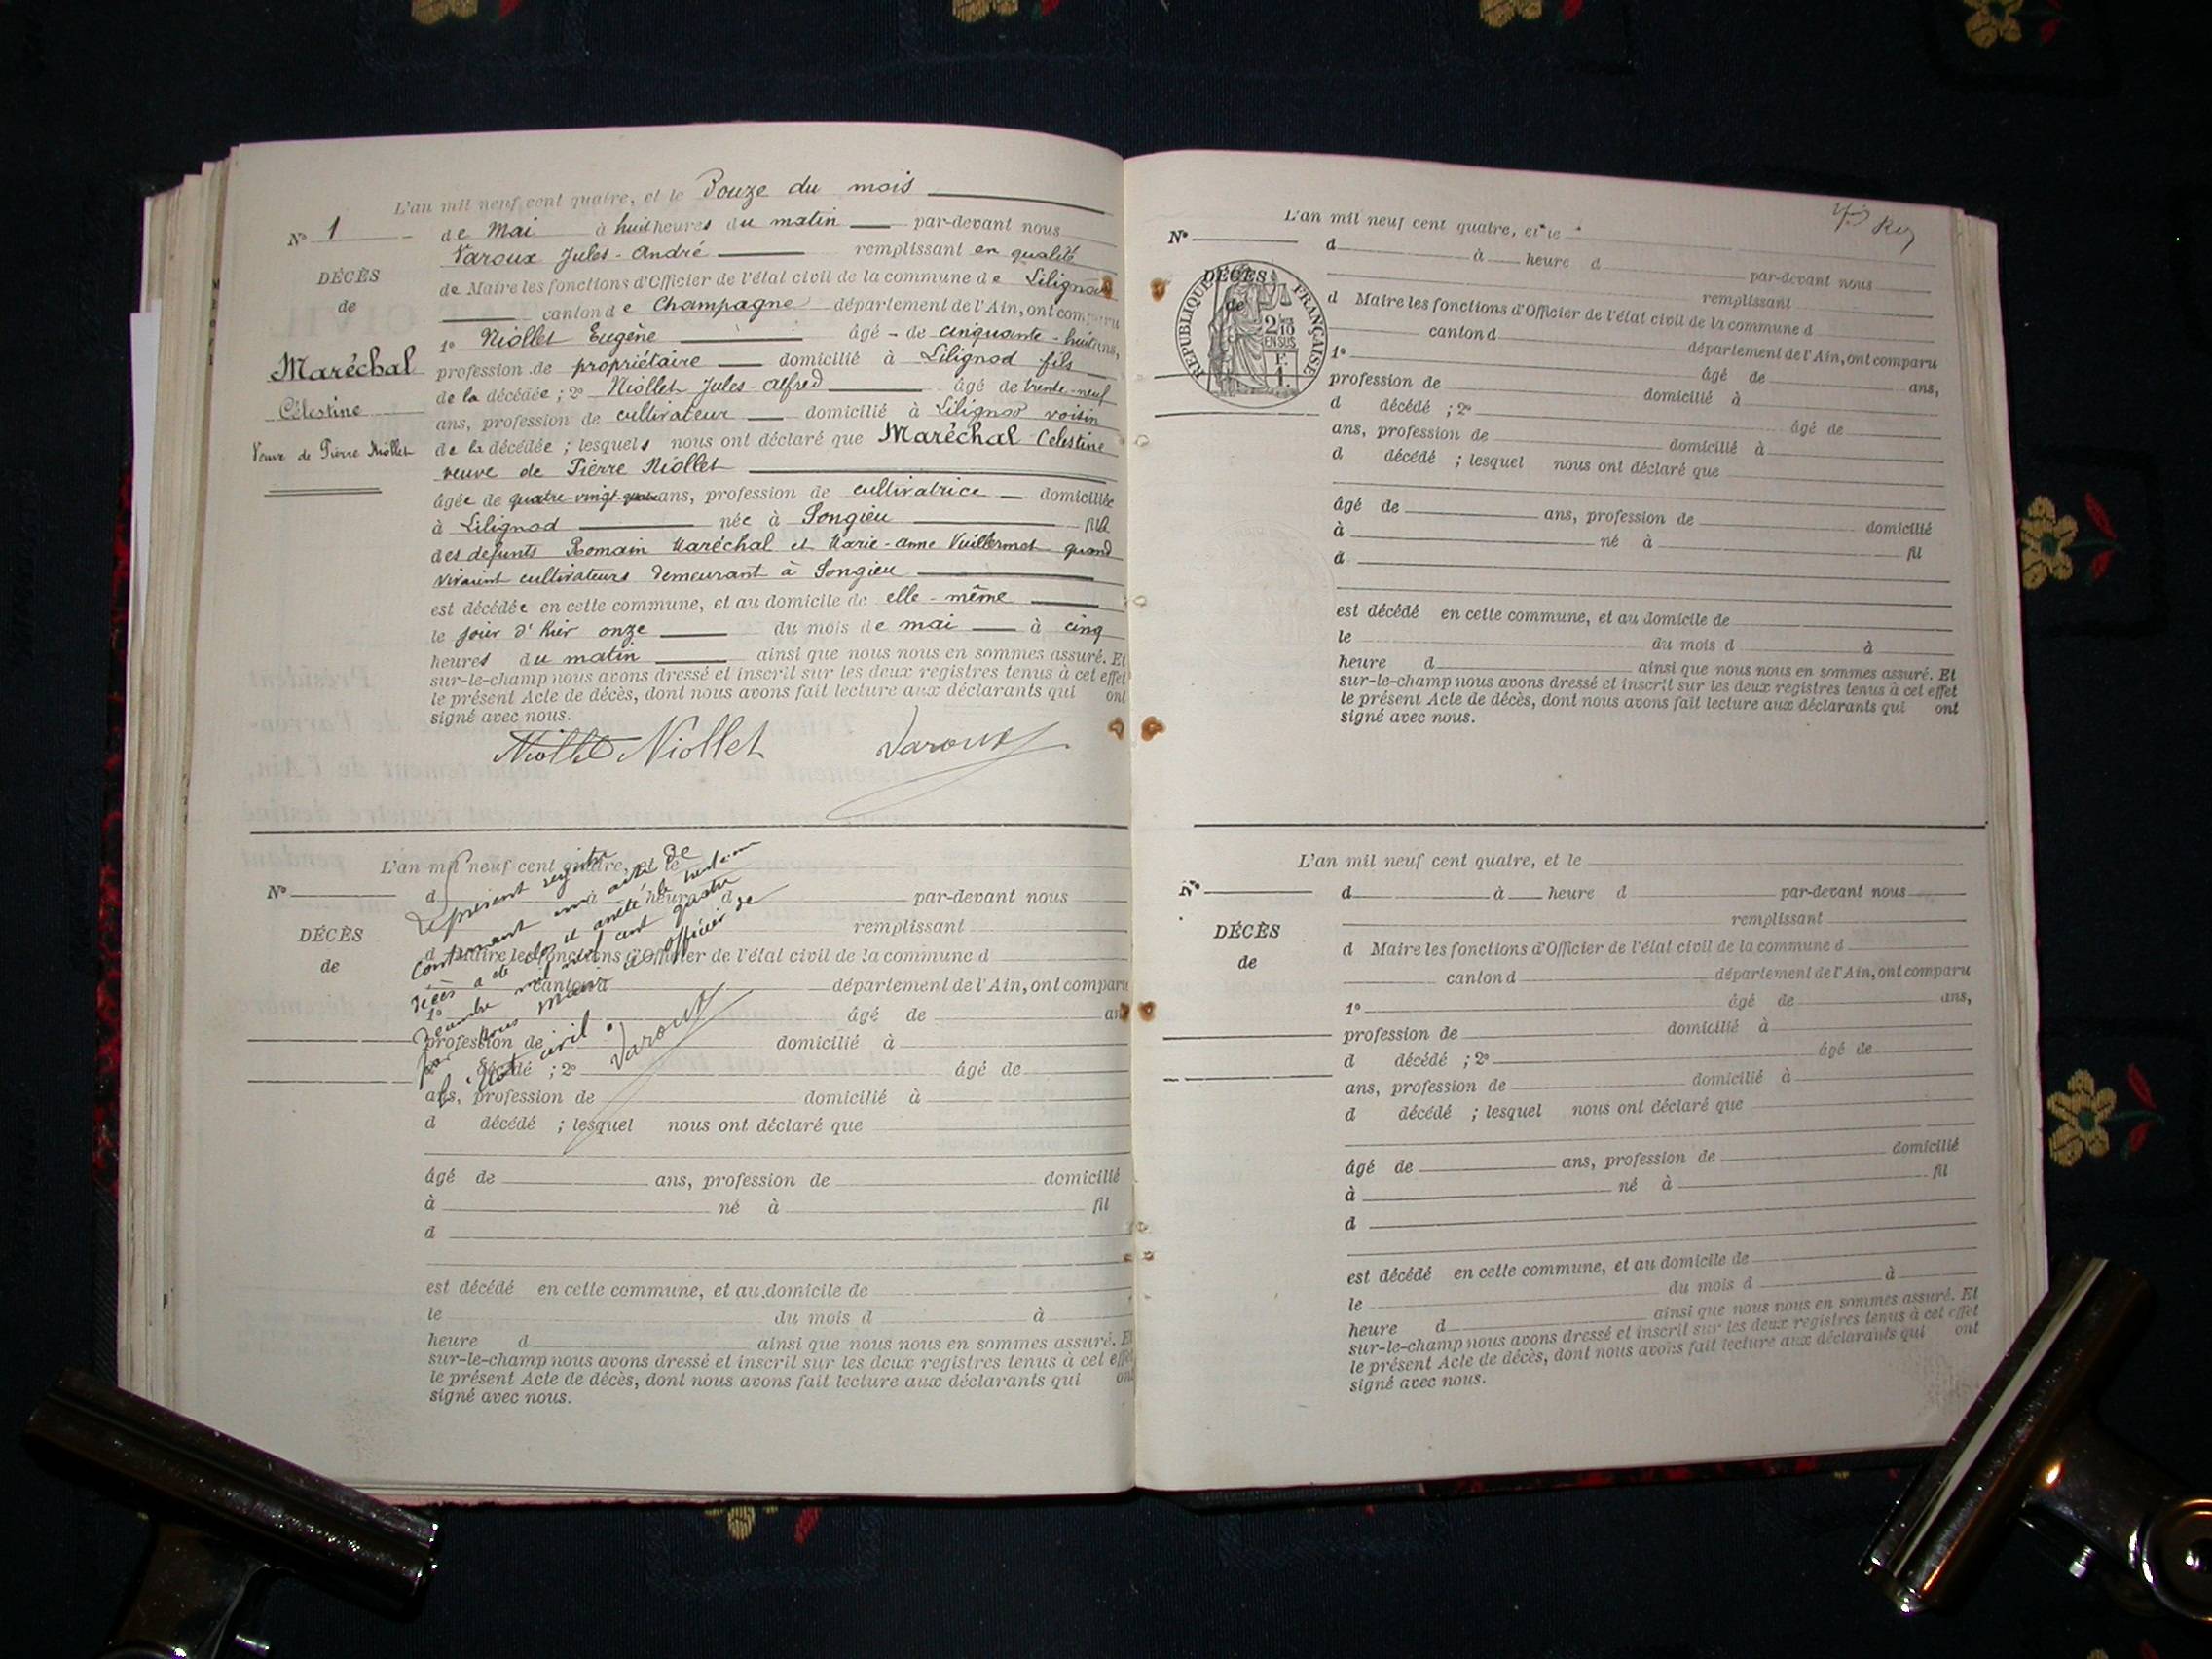 L'an mil neuf cent quatre, et le Douze du mois
N° 1
de Mai à huit heures du matin par-devant nous
Varoux Jules-André remplissant en qualité
DÉCÈS
de Maire les fonctions d'Officier de l'état civil de la commune de Lilignod
de
canton de Champagne département de l'Ain, ont comparu
1° Niollet Eugène âgé de cinquante-huit ans,
Maréchal
profession de propriétaire domicilié à Lilignod fils
de la décédée ; 2° Niollet Jules-Alfred âgé de trente-neuf
Célestine
ans, profession de cultivateur domicilié à Lilignod voisin
Veuve de Pierre Niollet
de la décédée ; lesquels nous ont déclaré que Maréchal Célestine
veuve de Pierre Niollet
âgée de quatre-vingt-quatre ans, profession de cultivatrice domiciliée
à Lilignod née à Songieu fille
des defunts Romain Maréchal et Marie-Anne Vuillermot quand
vivaient cultivateurs demeurant à Songieu
est décédée en cette commune, et au domicile de elle-même
le jour d'hier onze du mois de mai à cinq
heures du matin ainsi que nous nous en sommes assuré. Et
sur-le-champ nous avons dressé et inscrit sur les deux registres tenus à cet effet
le présent Acte de décès, dont nous avons fait lecture aux déclarants qui ont
signé avec nous.
Niollet Niollet Varoux
L'an mil neuf cent quatre, et le
N°
d à heure d par-devant nous
remplissant
DÉCÈS
de
d Maire les fonctions d'Officier de l'état civil de la commune d
canton d département de l'Ain, ont comparu
1° âgé de ans,
profession de domicilié à
d décédé ; 2° âgé de
ans, profession de domicilié à
d décédé ; lesquel nous ont déclaré que
âgé de ans, profession de domicilié
à né à fil
d
est décédé en cette commune, et au domicile de
le du mois d à
heure d ainsi que nous nous en sommes assuré. Et
sur-le-champ nous avons dressé et inscrit sur les deux registres tenus à cet effet
le présent Acte de décès, dont nous avons fait lecture aux déclarants qui ont
signé avec nous.
Le présent registre de
contenant un acte de
décès a été clos et arrêté le trente-un
décembre mil neuf cent quatre
par nous Maire et Officier de
l'état civil.
Varoux
Rey
L'an mil neuf cent quatre, et le
N°
d à heure d par-devant nous
remplissant
DÉCÈS
de
RÉPUBLIQUE FRANÇAISE
2/10
EN SUS
d Maire les fonctions d'Officier de l'état civil de la commune d
canton d département de l'Ain, ont comparu
1° âgé de ans,
profession de domicilié à
d décédé ; 2° âgé de
ans, profession de domicilié à
d décédé ; lesquel nous ont déclaré que
âgé de ans, profession de domicilié
à né à fil
d
est décédé en cette commune, et au domicile de
le du mois d à
heure d ainsi que nous nous en sommes assuré. Et
sur-le-champ nous avons dressé et inscrit sur les deux registres tenus à cet effet
le présent Acte de décès, dont nous avons fait lecture aux déclarants qui ont
signé avec nous.
L'an mil neuf cent quatre, et le
N°
d à heure d par-devant nous
remplissant
DÉCÈS
de
d Maire les fonctions d'Officier de l'état civil de la commune d
canton d département de l'Ain, ont comparu
1° âgé de ans,
profession de domicilié à
d décédé ; 2° âgé de
ans, profession de domicilié à
d décédé ; lesquel nous ont déclaré que
âgé de ans, profession de domicilié
à né à fil
d
est décédé en cette commune, et au domicile de
le du mois d à
heure d ainsi que nous nous en sommes assuré. Et
sur-le-champ nous avons dressé et inscrit sur les deux registres tenus à cet effet
le présent Acte de décès, dont nous avons fait lecture aux déclarants qui ont
signé avec nous.